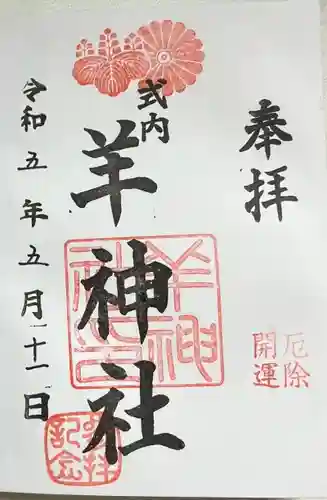 奉拝
厄除
開運
式内
羊神社
羊神
社之印
令和五年五月二十一日
参拝
記念